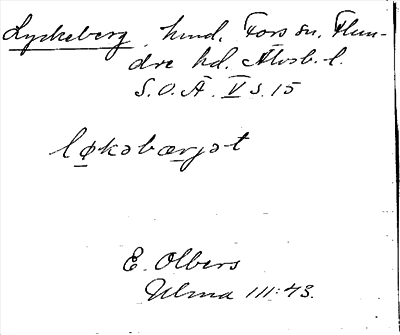 Lyckeberg, hmd, Fors sn, Flun-
dre hd. Älvsb. l.
S.O.Ä. V s. 15
løkəbærjət
E. Olbers
Ulma 111:43.